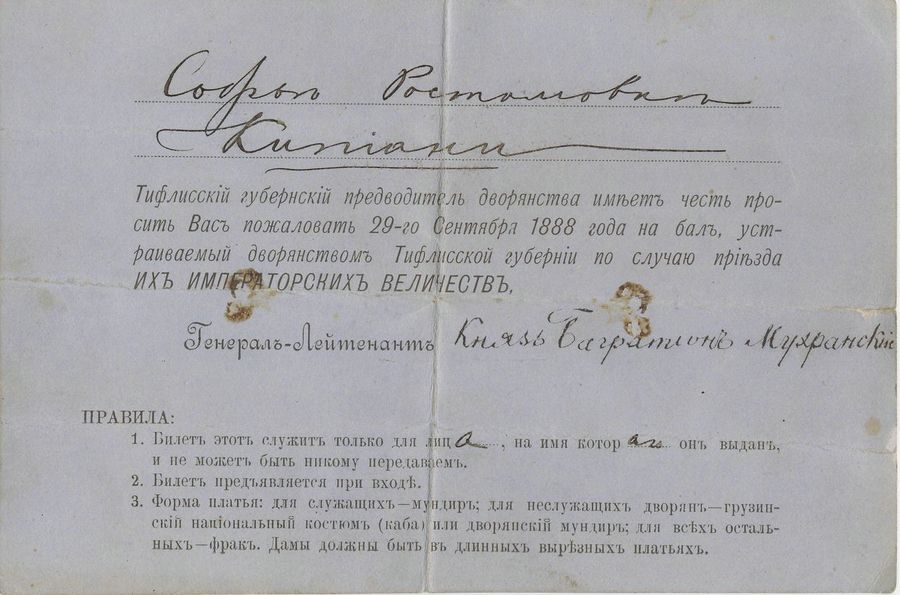 Софьѣ Ростомовнѣ
Кипіани
Тифлисскій губернскій предводитель дворянства имѣетъ честь про-
сить Васъ пожаловать 29-го Сентября 1888 года на балъ, уст-
раиваемый дворянствомъ Тифлисской губерніи по случаю пріѣзда
ИХЪ ИМПЕРАТОРСКИХЪ ВЕЛИЧЕСТВЪ.
Генералъ-Лейтенантъ Князь Багратіонъ Мухранскій
ПРАВИЛА:
1. Билетъ этотъ служитъ только для лица, на имя котораго онъ выданъ,
и не можетъ быть никому передаваемъ.
2. Билетъ предъявляется при входѣ.
3. Форма платья: для служащихъ—мундиръ; для неслужащихъ дворянъ—грузин-
скій національный костюмъ (каба) или дворянскій мундиръ; для всѣхъ осталь-
ныхъ—фракъ. Дамы должны быть въ длинныхъ вырѣзныхъ платьяхъ.